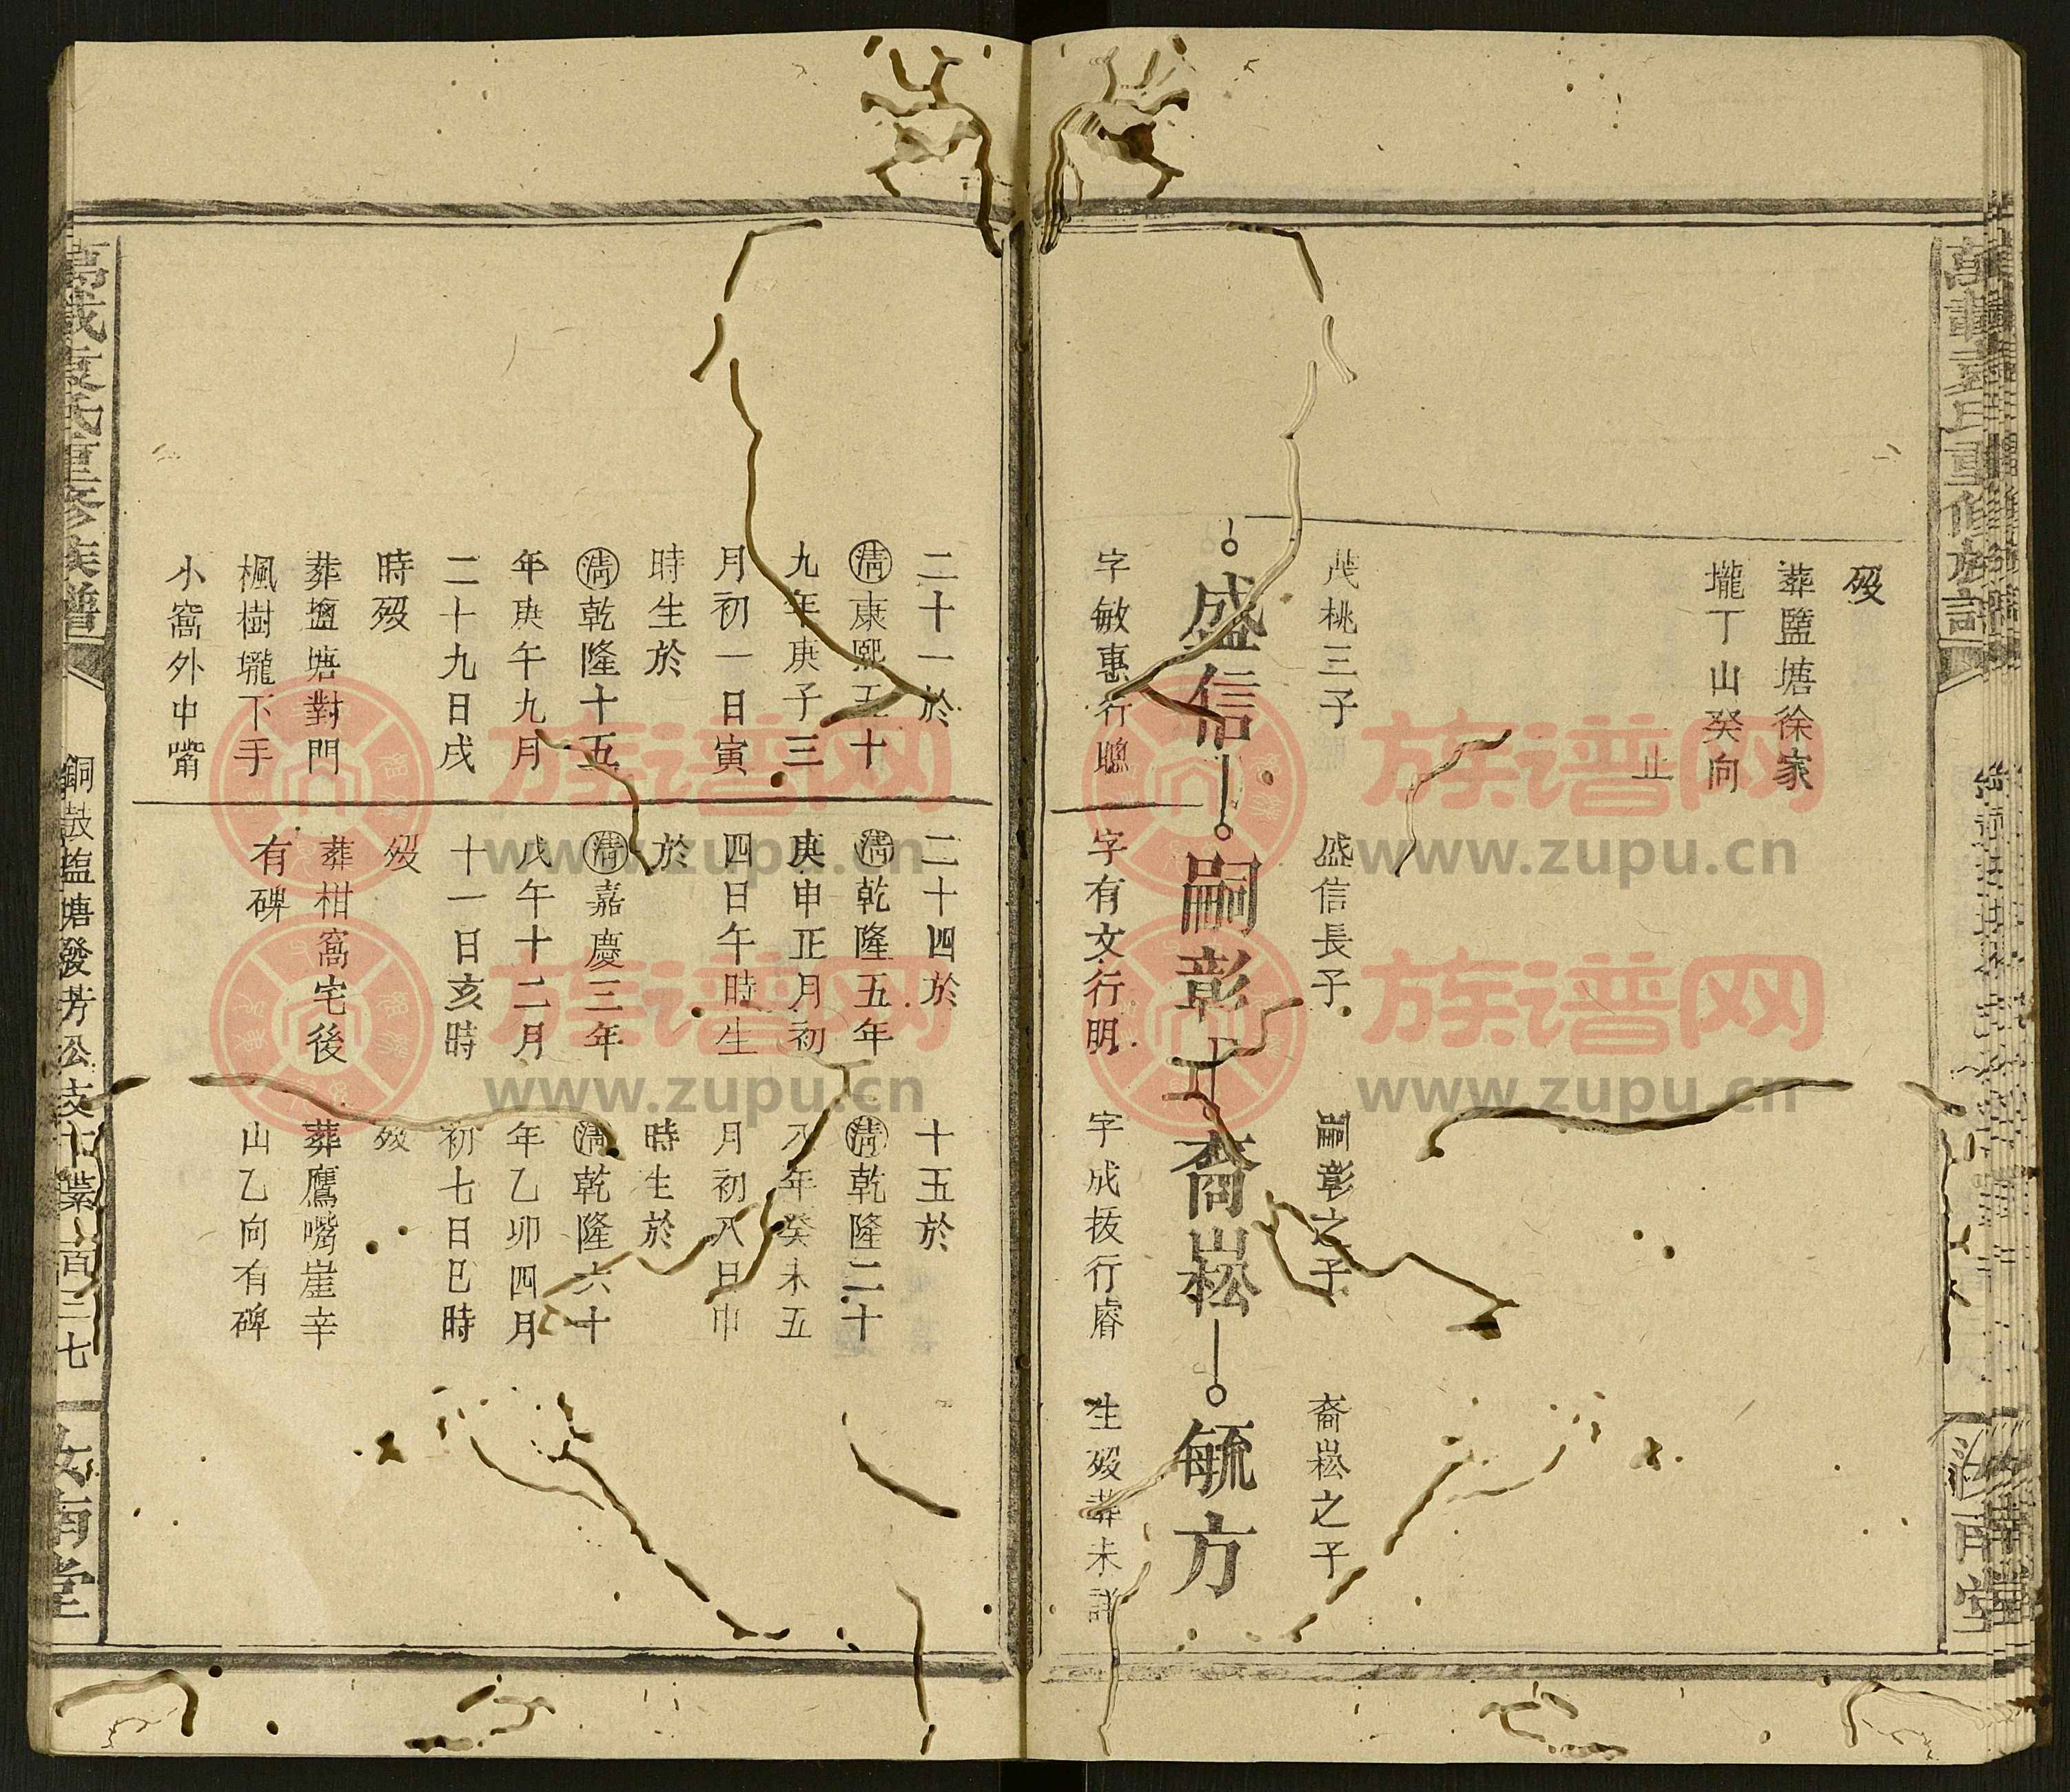 歿
葬盬塘徐家
壠丁山癸向
止
茂桃三子
盛信
字敏惠行聰
盛信長子
嗣彰
字有文行明
嗣彰之子
裔崧
字成拔行睿
裔崧之子
毓方
生歿葬未詳
二十一於
清康熙五十
九年庚子三
月初一日寅
時生於
清乾隆十五
年庚午九月
二十九日戌
時歿
葬盬塘對門
楓樹壠下手
小窩外中嘴
二十四於
清乾隆五年
庚申正月初
四日午時生
於
清嘉慶三年
戊午十二月
十一日亥時
歿
葬柑窩宅後
有碑
十五於
清乾隆二十
八年癸未五
月初八日巾
時生於
清乾隆六十
年乙卯四月
初七日巳時
歿
葬鷹嘴崖辛
山乙向有碑
萬載袁氏重修族譜
銅鼓盐塘發芳公支
百三七
汝南堂
族谱网
www.zupu.cn
族谱网
www.zupu.cn
族谱网
www.zupu.cn
族谱网
www.zupu.cn